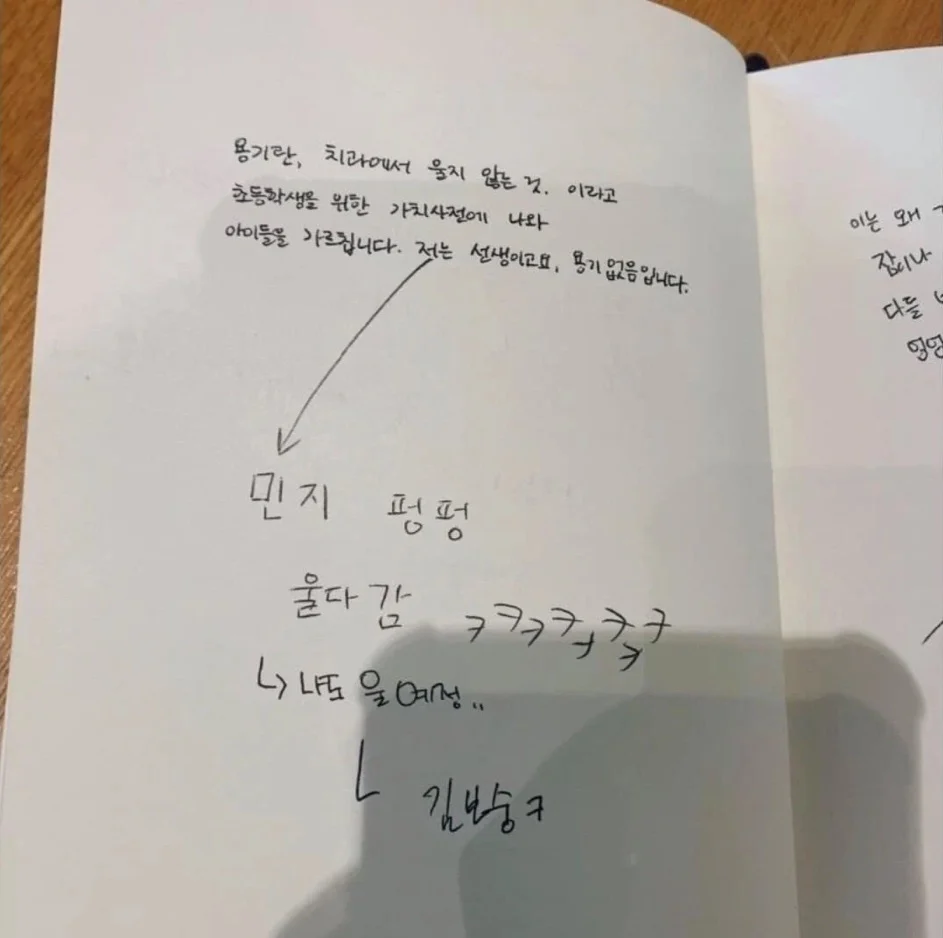 용기란, 치과에서 울지 않는 것. 이라고
초등학생을 위한 가치사전에 나와
아이들을 가르칩니다. 저는 선생이고요, 용기없음입니다.
민지 펑펑
울다 감 ㅋㅋㅋㅋㅋㅋㅋㅋ
↳ 나도 울 예정..
김보승ㅋ
이는 왜
잡이나
다들
엉엉